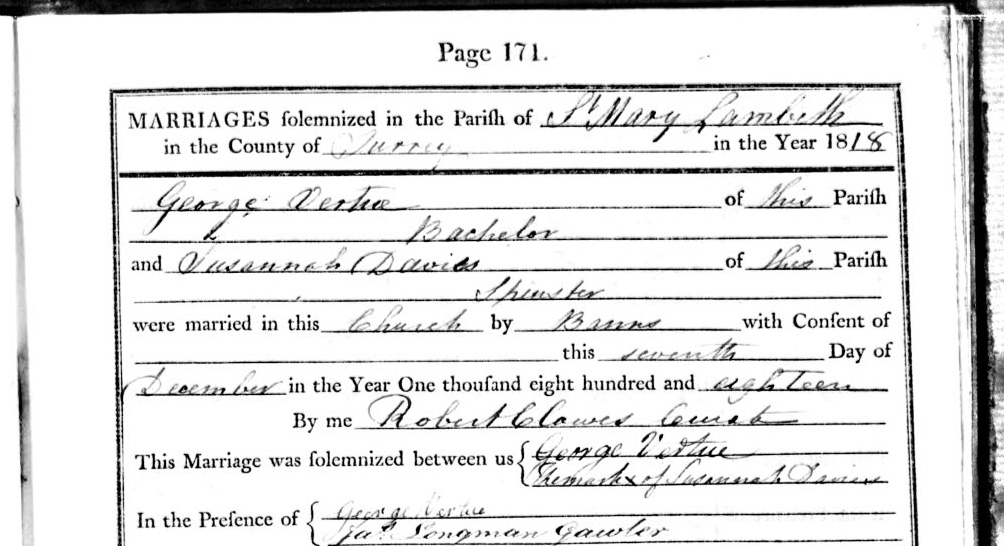 Page 171.
MARRIAGES ſolemnized in the Pariſh of St Mary Lambeth
in the County of Surrey in the Year 1818
George Vertue of this Pariſh
Bachelor
and Susannah Davies of this Pariſh
Spinster
were married in this Church by Banns with Conſent of
this seventh Day of
December in the Year One thouſand eight hundred and eighteen
By me Robert Clowes Curate
This Marriage was ſolemnized between us { George Vertue
The mark x of Susannah Davies
In the Preſence of { George Vertue
Jas Longman Gawler